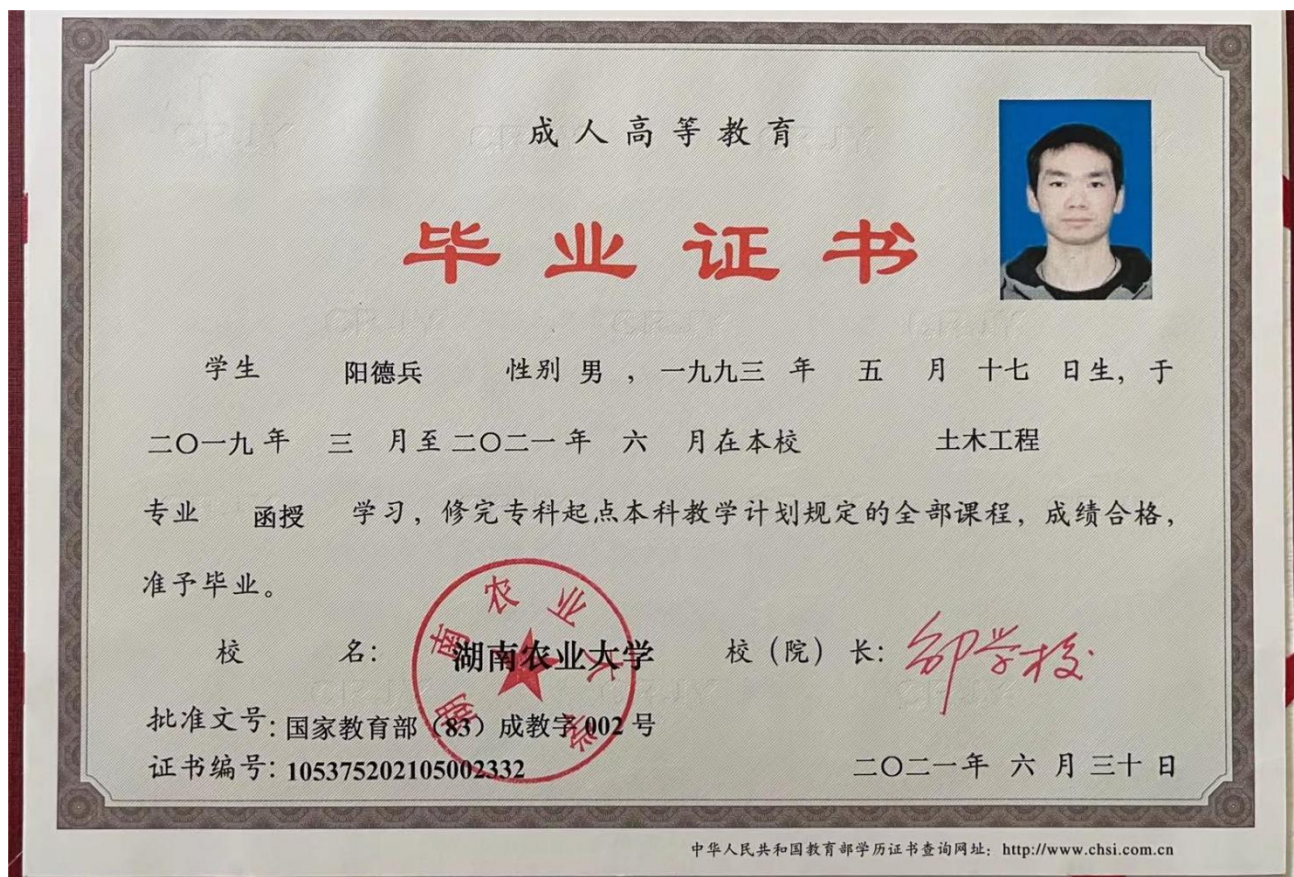 成人高等教育
毕业证书
学生 阳德兵 性别 男 ，一九九三 年 五 月 十七 日生，于
二〇一九 年 三 月至 二〇二一 年 六 月在本校 土木工程
专业 函授 学习，修完专科起点本科教学计划规定的全部课程，成绩合格，
准予毕业。
校 名： 湖南农业大学 校（院）长： 邹学校
湖南农业大学
批准文号：国家教育部（83）成教字 002 号
证书编号：105375202105002332 二〇二一年 六 月 三十 日
中华人民共和国教育部学历证书查询网址：http://www.chsi.com.cn